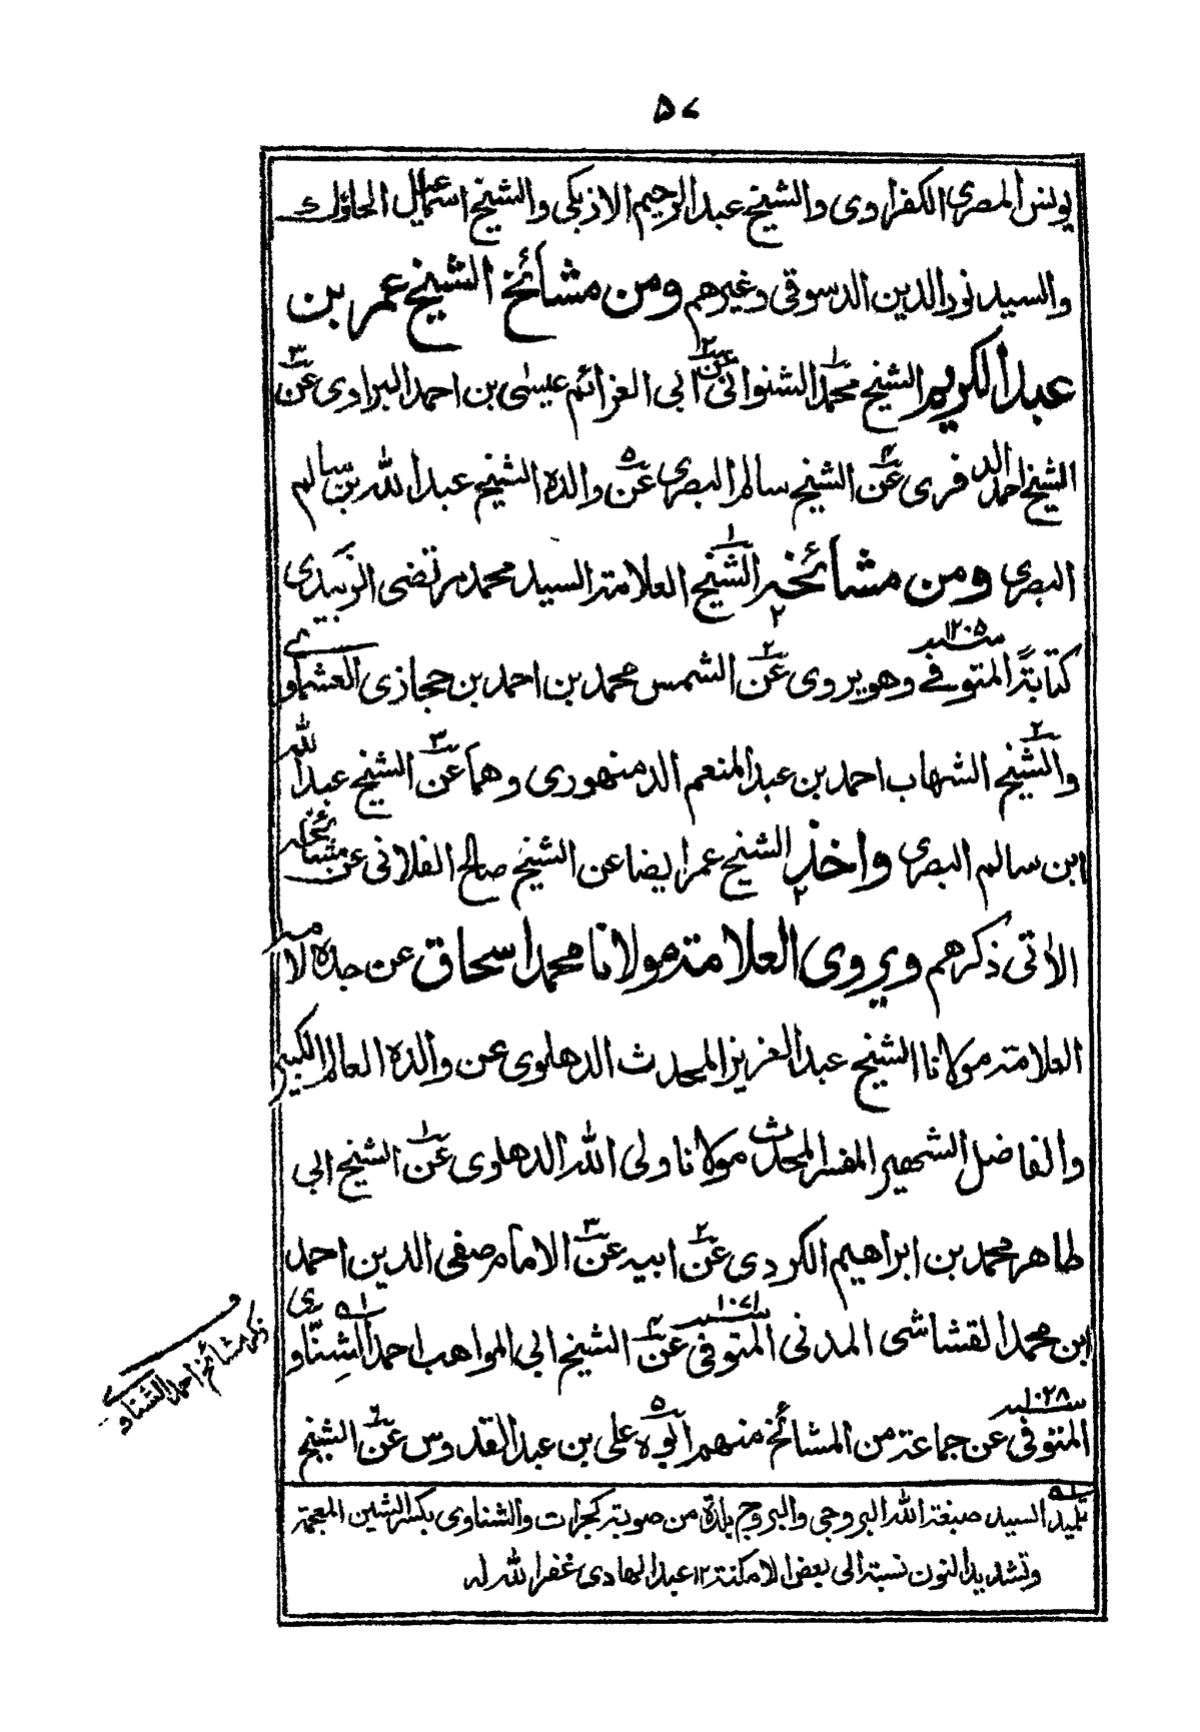 ۵۷
يونس المصري الكفراوى والشيخ عبد الرحيم الازبكى والشيخ اسماعيل الحاوك
والسيد نور الدين الدسوقى وغيرهم ومن مشائخ الشيخ عمر بن
عبد الكريم الشيخ محمد الشنوانى عن ابى العزائم عيسى بن احمد البراوى عن
الشيخ احمد الدفرى عن الشيخ سالم البصرى عن والده الشيخ عبد الله بن سالم
البصرى ومن مشائخه الشيخ العلامة السيد محمد مرتضى الزبيدى
كتابةً المتوفے سنة ١٢٠٥ وهو يروى عن الشمس محمد بن احمد بن حجازى العشماوى
والشيخ الشهاب احمد بن عبد المنعم الدمنهورى وهما عن الشيخ عبد الله
ابن سالم البصرى واخذ الشيخ عمر ايضا عن الشيخ صالح الفلانى عن مشائخه
الاٰتى ذكرهم ويروى العلامة مولانا محمد اسحاق عن جده لامه
العلامة مولانا الشيخ عبد العزيز المحدث الدهلوى عن والده العالم الكبير
والفاضل الشهير المفسر المحدث مولانا ولى الله الدهلوى عن الشيخ ابى
طاهر محمد بن ابراهيم الكردى عن ابيه عن الامام صفى الدين احمد
ابن محمد القشاشى المدنى المتوفى سنة ١٠٧١ عن الشيخ ابى المواهب احمد الشِنّاوى
المتوفى سنة ١٠٢٨ عن جماعة من المشائخ منهم ابوه على بن عبد القدوس عن الشيخ
ذكر مشائخ احمد الشناوى
تلميذ السيد صبغة الله البروجى والبروج بلدة من صوبة كجرات والشناوى بكسر الشين المعجمة
وتشديد النون نسبة الى بعض الامكنة ١٢ عبد الهادى غفر الله له